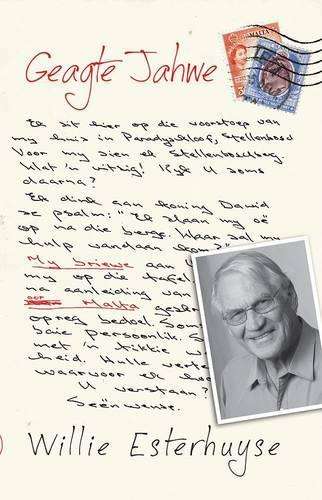 Geagte Jahwe
Ek sit hier op die voorstoep van
my huis in Paradyskloof, Stellenbosch
Voor my sien ek Stellenboschberg.
Wat 'n uitsig! Kyk U soms
daarna?
Ek dink aan koning Dawid
se psalm: "Ek slaan my oë
op na die berge. Waar sal my
hulp vandaan kom?"
My briewe aan
my op die tafel
na aanleiding van
oor
Malta
opreg bedoel. Som
baie persoonlik. S
met 'n tikkie
heid. Hulle verte
waarvoor ek
U verstaan?
Seënwense.
Willie Esterhuyse